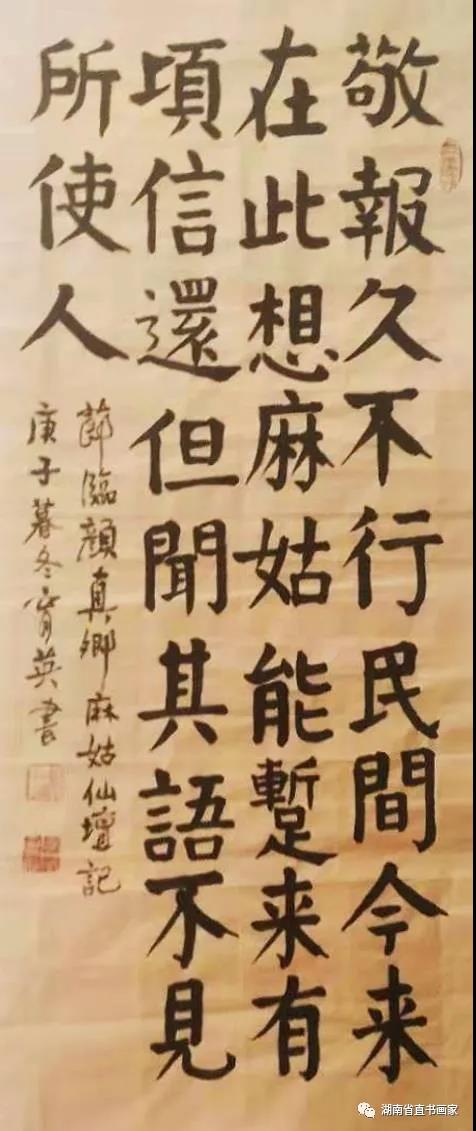 敬報久不行民間今来
在此想麻姑能蹔来有
項信還但聞其語不見
所使人
節臨顔真卿麻姑仙壇記
庚子暮冬英書
湖南省直书画家